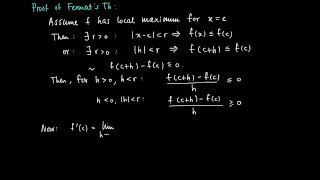 Proof of Fermat's Th:
Assume f has local maximum for x = c
Then: ∃ r > 0 : |x-c| < r ⇒ f(x) ≤ f(c)
or: ∃ r > 0 : |h| < r ⇒ f(c+h) ≤ f(c)
~ f(c+h) - f(c) ≤ 0.
Then, for h > 0, h < r: f(c+h) - f(c) / h ≤ 0
h < 0, |h| < r: f(c+h) - f(c) / h ≥ 0
Now: f'(c) = lim h→